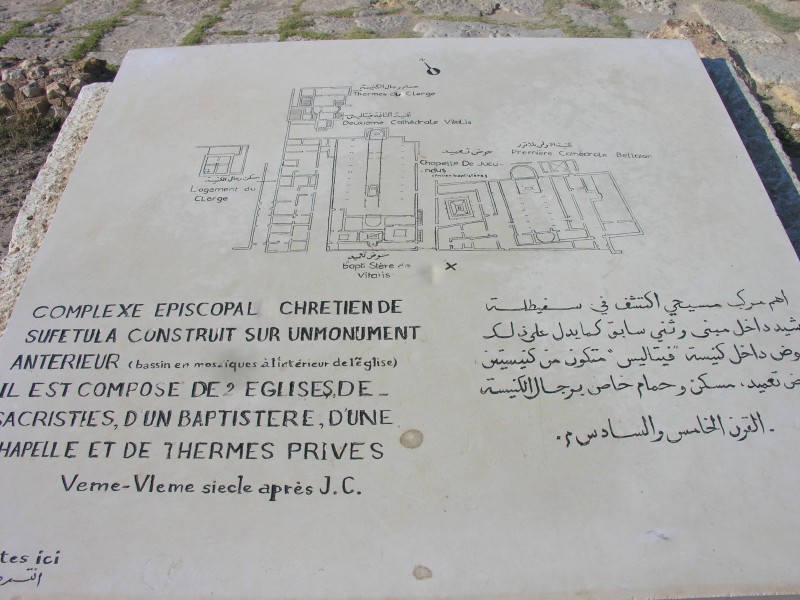 حمام رجال الكنيسة
Thermes du Clerge
Deuxieme Cathédrale Vitalis
حوض تعميد
Chapelle De Jucu-
ndus
(Ancien baptistère)
Première Cathédrale Bellator
سكن رجال الكنيسة
Logement du
Clerge
حوض تعميد
bapti Stère de
Vitalis
COMPLEXE EPISCOPAL CHRETIEN DE
SUFETULA CONSTRUIT SUR UNMONUMENT
ANTERIEUR (bassin en mosaïques à l'intérieur de l'église)
IL EST COMPOSE DE 2 EGLISES, DE_
SACRISTIES, D'UN BAPTISTERE, D'UNE
HAPELLE ET DE THERMES PRIVES
Veme-VIeme siecle après J.C.
اهم مركب مسيحي اكتشف في سفيطلة
شيد داخل مبنى وثني سابق كما يدل على ذلك
وض داخل كنيسة "فيتاليس" متكون من كنيستين
ض تعميد، مسكن وحمام خاص برجال الكنيسة
القرن الخامس والسادس م.
tes ici